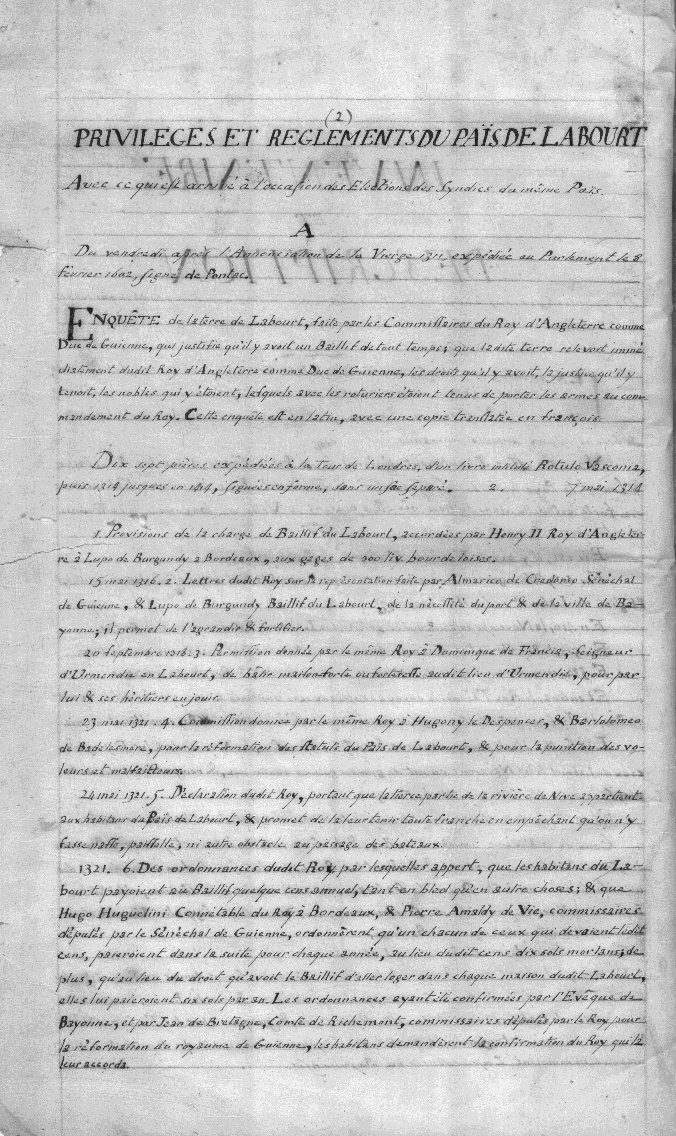 (2)
PRIVILEGES ET REGLEMENTS DU PAÏS DE LABOURT
Avec ce qui est arrivé à l'occasion des Elections des Syndics du même Païs.
A
Du vendredi après l'Annonciation de la Vierge 1311, expédiée au Parlement le 8
février 1602, signé de Pontac.
ENQUÊTE de la terre de Labourt, faite par les Commissaires du Roy d'Angleterre comme
Duc de Guienne, qui justifie qu'il y avoit un Baillif de tout temps; que ladite terre relevoit immé
diatement dudit Roy d'Angleterre comme Duc de Guienne, les droits qu'il y avoit, la justice qu'il y
tenoit, les nobles qui y étoient, lesquels avec les roturiers étoient tenus de porter les armes au com-
mandement du Roy. Cette enquête est en latin, avec une copie translatée en françois.
Dix sept pièces expédiées à la Tour de Londres, d'un livre intitulé Rotulo Vasconia,
puis 1314 jusques en 1414, signées en forme, dans un sac séparé. 2. 7 mai 1314
1. Provisions de la charge de Baillif du Labourt, accordées par Henry II Roy d'Angleter-
re à Lupo de Burgundy a Bordeaux, aux gages de 300 liv. bourdeloises.
15 mai 1316. 2. Lettres dudit Roy sur la représentation faite par Almarico de Credonio Sénéchal
de Guienne, & Lupo de Burgundy Baillif du Labourt, de la nécessité du port & de la ville de Ba-
yonne; il permet de l'agrandir & fortifier.
20 septembre 1316. 3. Permission donnée par le même Roy à Dominique de Francia, Seigneur
d'Urmendia en Labourt, de bâtir maison forte ou forteresse audit lieu d'Urmendia, pour par
lui & ses héritiers en jouir.
23 mai 1321. 4. Commission donnée par le même Roy à Hugony le Despencer, & Bartolomeo
de Badelesmere, pour la réformation des statuts du Païs de Labourt, & pour la punition des vo-
leurs et malfaiteurs.
24 mai 1321. 5. Déclaration dudit Roy, portant que la tierce partie de la rivière de Nive appartient
aux habitans du Païs de Labourt, & promet de la leur tenir toute franche en empêchant qu'on n'y
fasse nasse, paisselle, ni autre obstacle au passage des bateaux.
1321. 6. Des ordonnances dudit Roy par lesquelles appert, que les habitans du La-
bourt payoient au Baillif quelque cens annuel, tant en bled qu'en autre choses; & que
Hugo Huguelini Connétable du Roy à Bordeaux, & Pierre Arnaldy de Vie, commissaires
députés par le Sénéchal de Guienne, ordonnèrent qu'un chacun de ceux qui devaient ledit
cens, paieroient dans la suite pour chaque année, au lieu dudit cens dix sols morlans; de
plus, qu'au lieu du droit qu'avoit le Baillif d'aller loger dans chaque maison dudit Labourt,
elles lui paieroient six sols par an. Les ordonnances ayant été confirmées par l'Evêque de
Bayonne, et par Jean de Bretagne, Comte de Richemont, commissaires députés par le Roy pour
la réformation du royaume de Guienne, les habitans demandèrent la confirmation du Roy qui la
leur accorda.